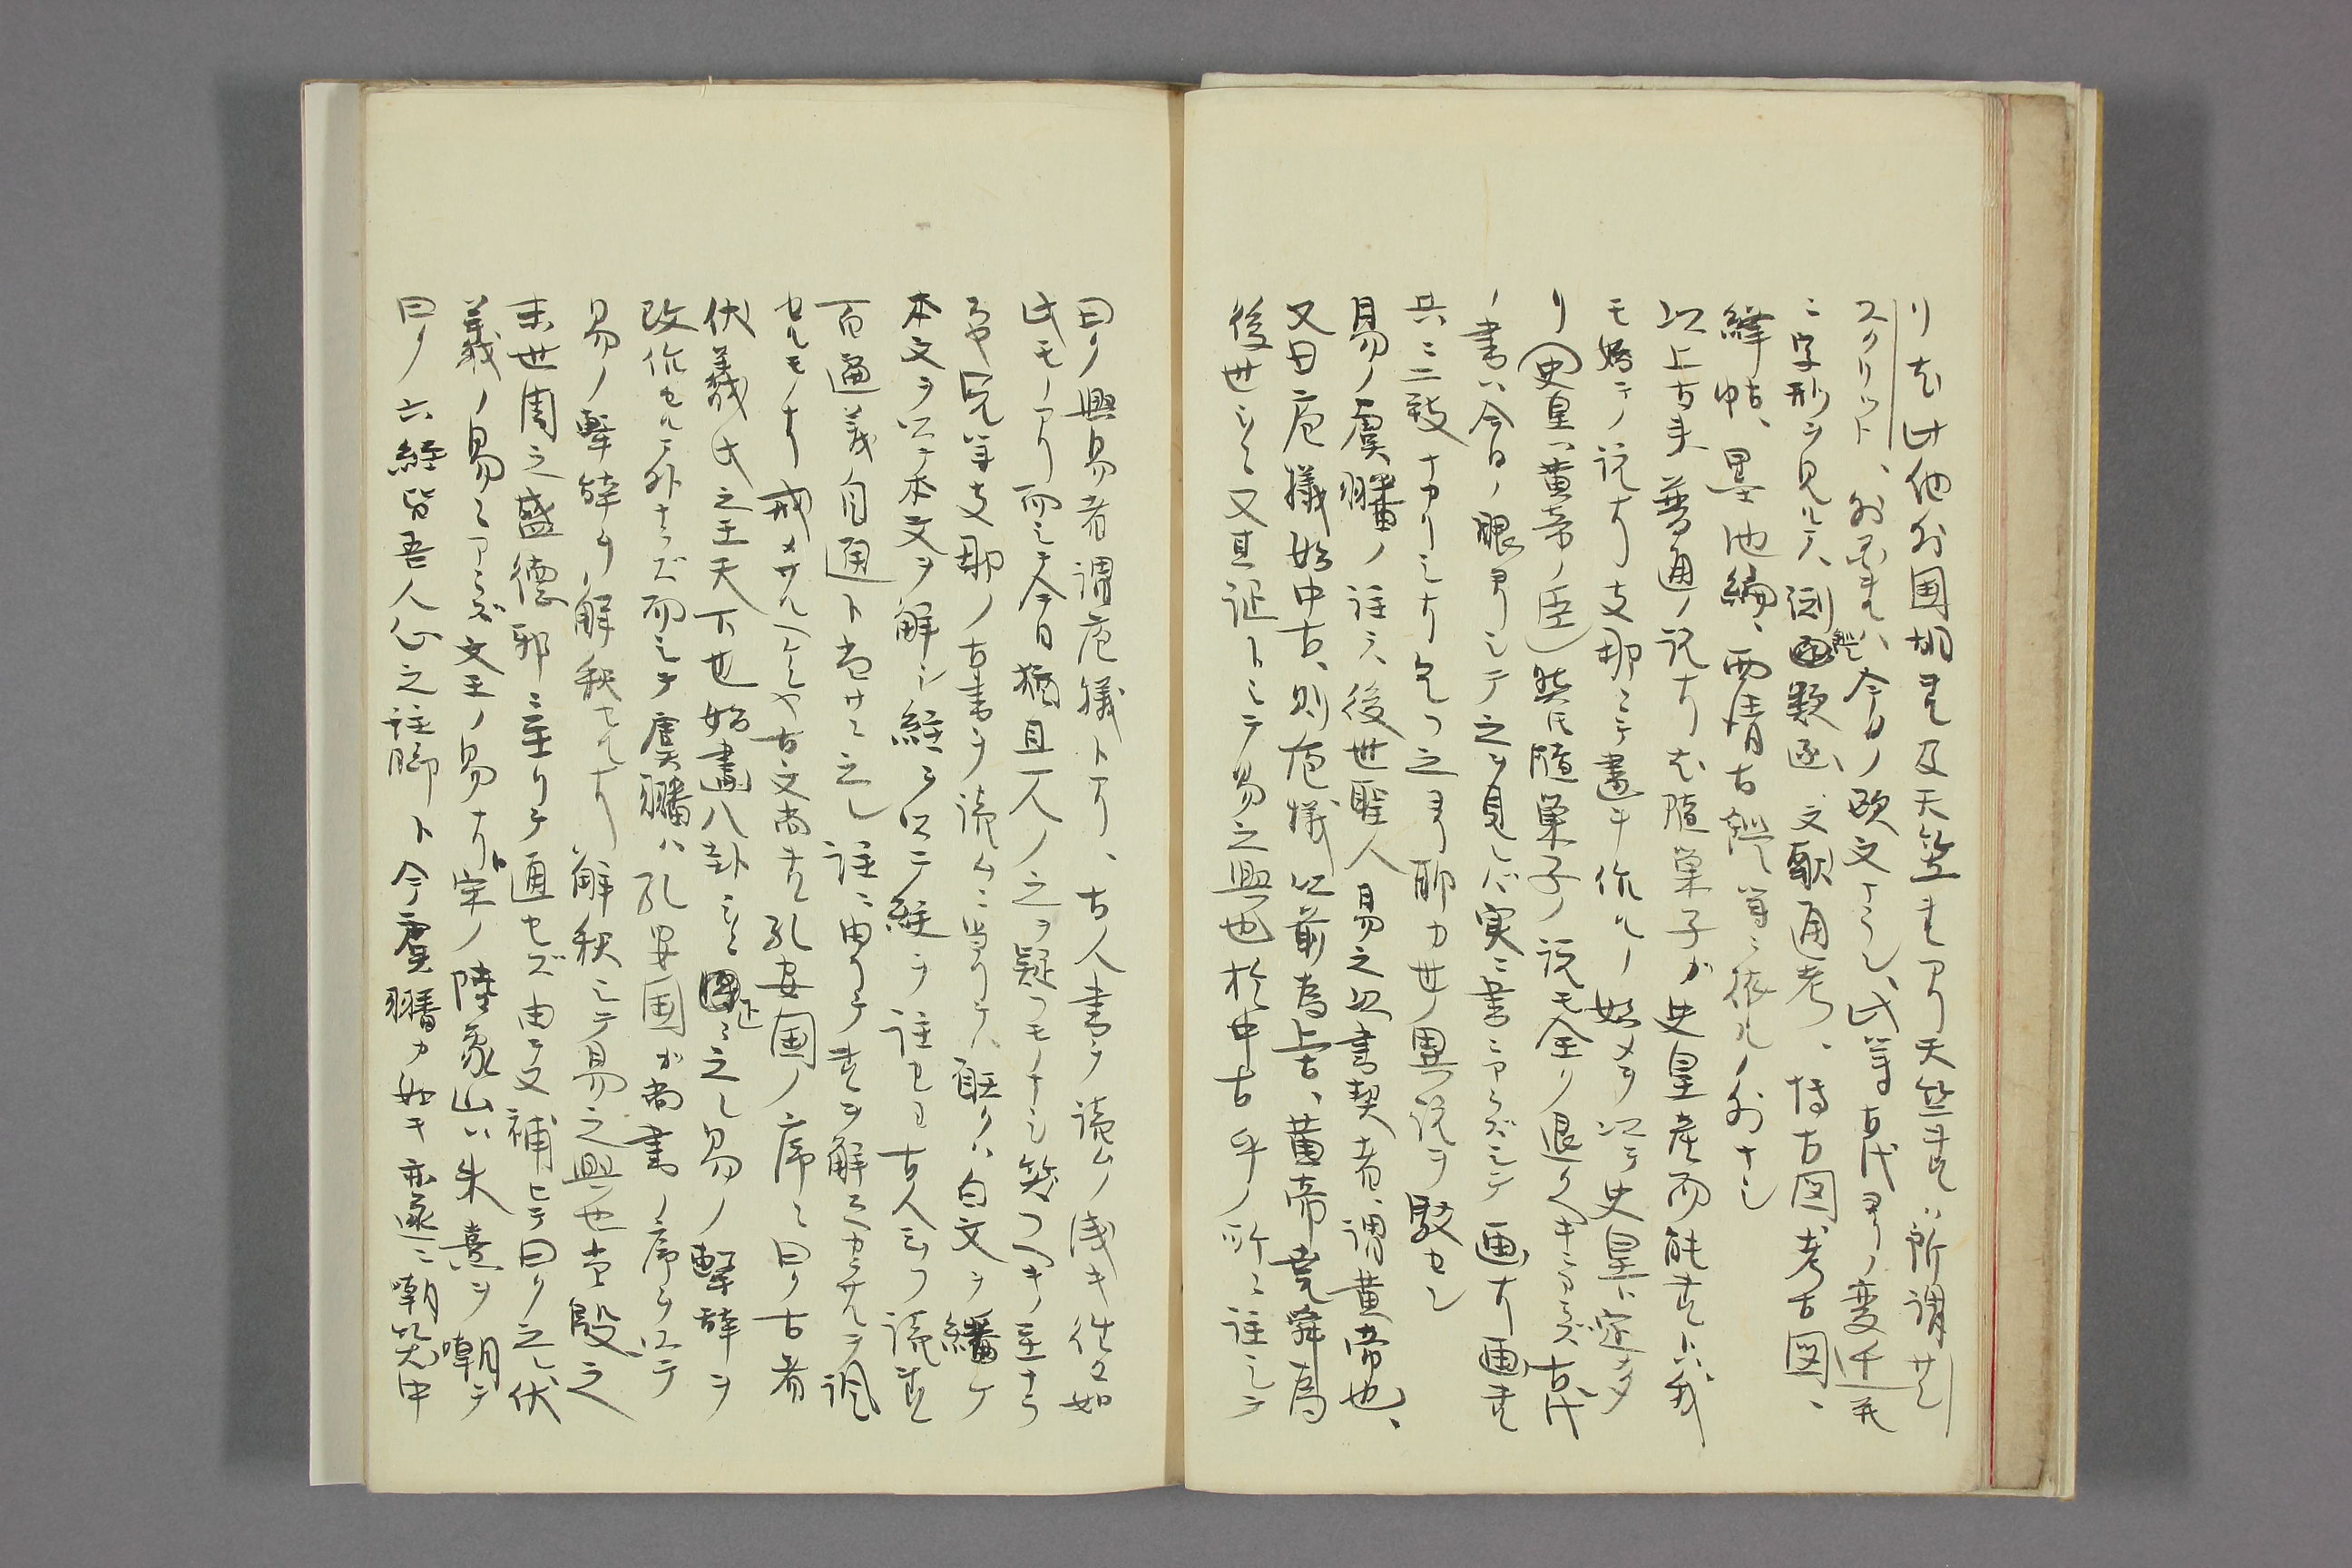 リ尤此他外国胡書及天竺書アリ天竺書ハ所謂サン
スクリツト、外ニ今日ノ欧文ナラン、此等古代ヨリノ変千
ニ字形ヲ見ルニハ淵鑑類函、文献通考、博古図、考古図、
絳帖、墨池編、西清古鑑等ニ依ルノ外ナシ
以上古来普通ノ説ナリ尤随巣子ガ史皇産而能書トハ我
モ始テノ説ナリ支那ニテ書ヲ作ルノ始メヲ以テ史皇ト
リ(史皇ハ黄帝ノ臣)然氏随巣子ノ説モ全ク退クベキニアラズ古代
ノ書ハ今日ノ眼ヨリシテ之ヲ見レバ実ニ書ニアラズシテ画ナリ画書
共ニ二致ナカリシナリ之ヨリ聊カ世ノ異説ヲ駁セン
易ノ虞翻ノ註ニハ後世聖人易之以書契者、謂黄帝也、
又曰庖犠始中古、則庖犠以前為上古、黄帝堯舜為
後世云々又其証トシテ易之興也於中古乎ノ所ニ註シテ
曰ク興易者謂庖犠トアリ、古人書ヲ読ムノ浅キ往々如
此モノアリ而シテ今日猶且人ノ之ヲ疑フモノナシ笑フベキノ至ナラ
ズヤ況等支那ノ古書ヲ読ムニ当リテハ白文ヲ繙ケ
本文ヲ以テ本文ヲ解シ経ヲ以テ経ヲ註セヨ古人云フ読書
百遍義自通ト尚サニ之レ註ニ由リテ書ヲ解スベカラザルヲ諷
セルモノナリ戒メザルベケンヤ古文尚書孔安国ノ序ニ曰ク古者
伏羲氏之王天下也始畫八卦云々正ニ之レ易ノ繫辞ヲ
改作セルニ外ナラズ而シテ虞翻ハ孔安国ガ尚書ノ序ヲ以テ
易ノ繫辞ヲ解釈セルナリ解釈シテ易之興也当殷之
末世周之盛徳邪ニ至リテ通セズ由テ又補ヒテ曰ク之レ伏
羲ノ易ニアラズ文王ノ易ナリト宋ノ陸象山ハ朱熹ヲ嘲テ
曰ク六経皆吾人心之註脚ト今虞翻カ如キ亦遂ニ嘲笑中